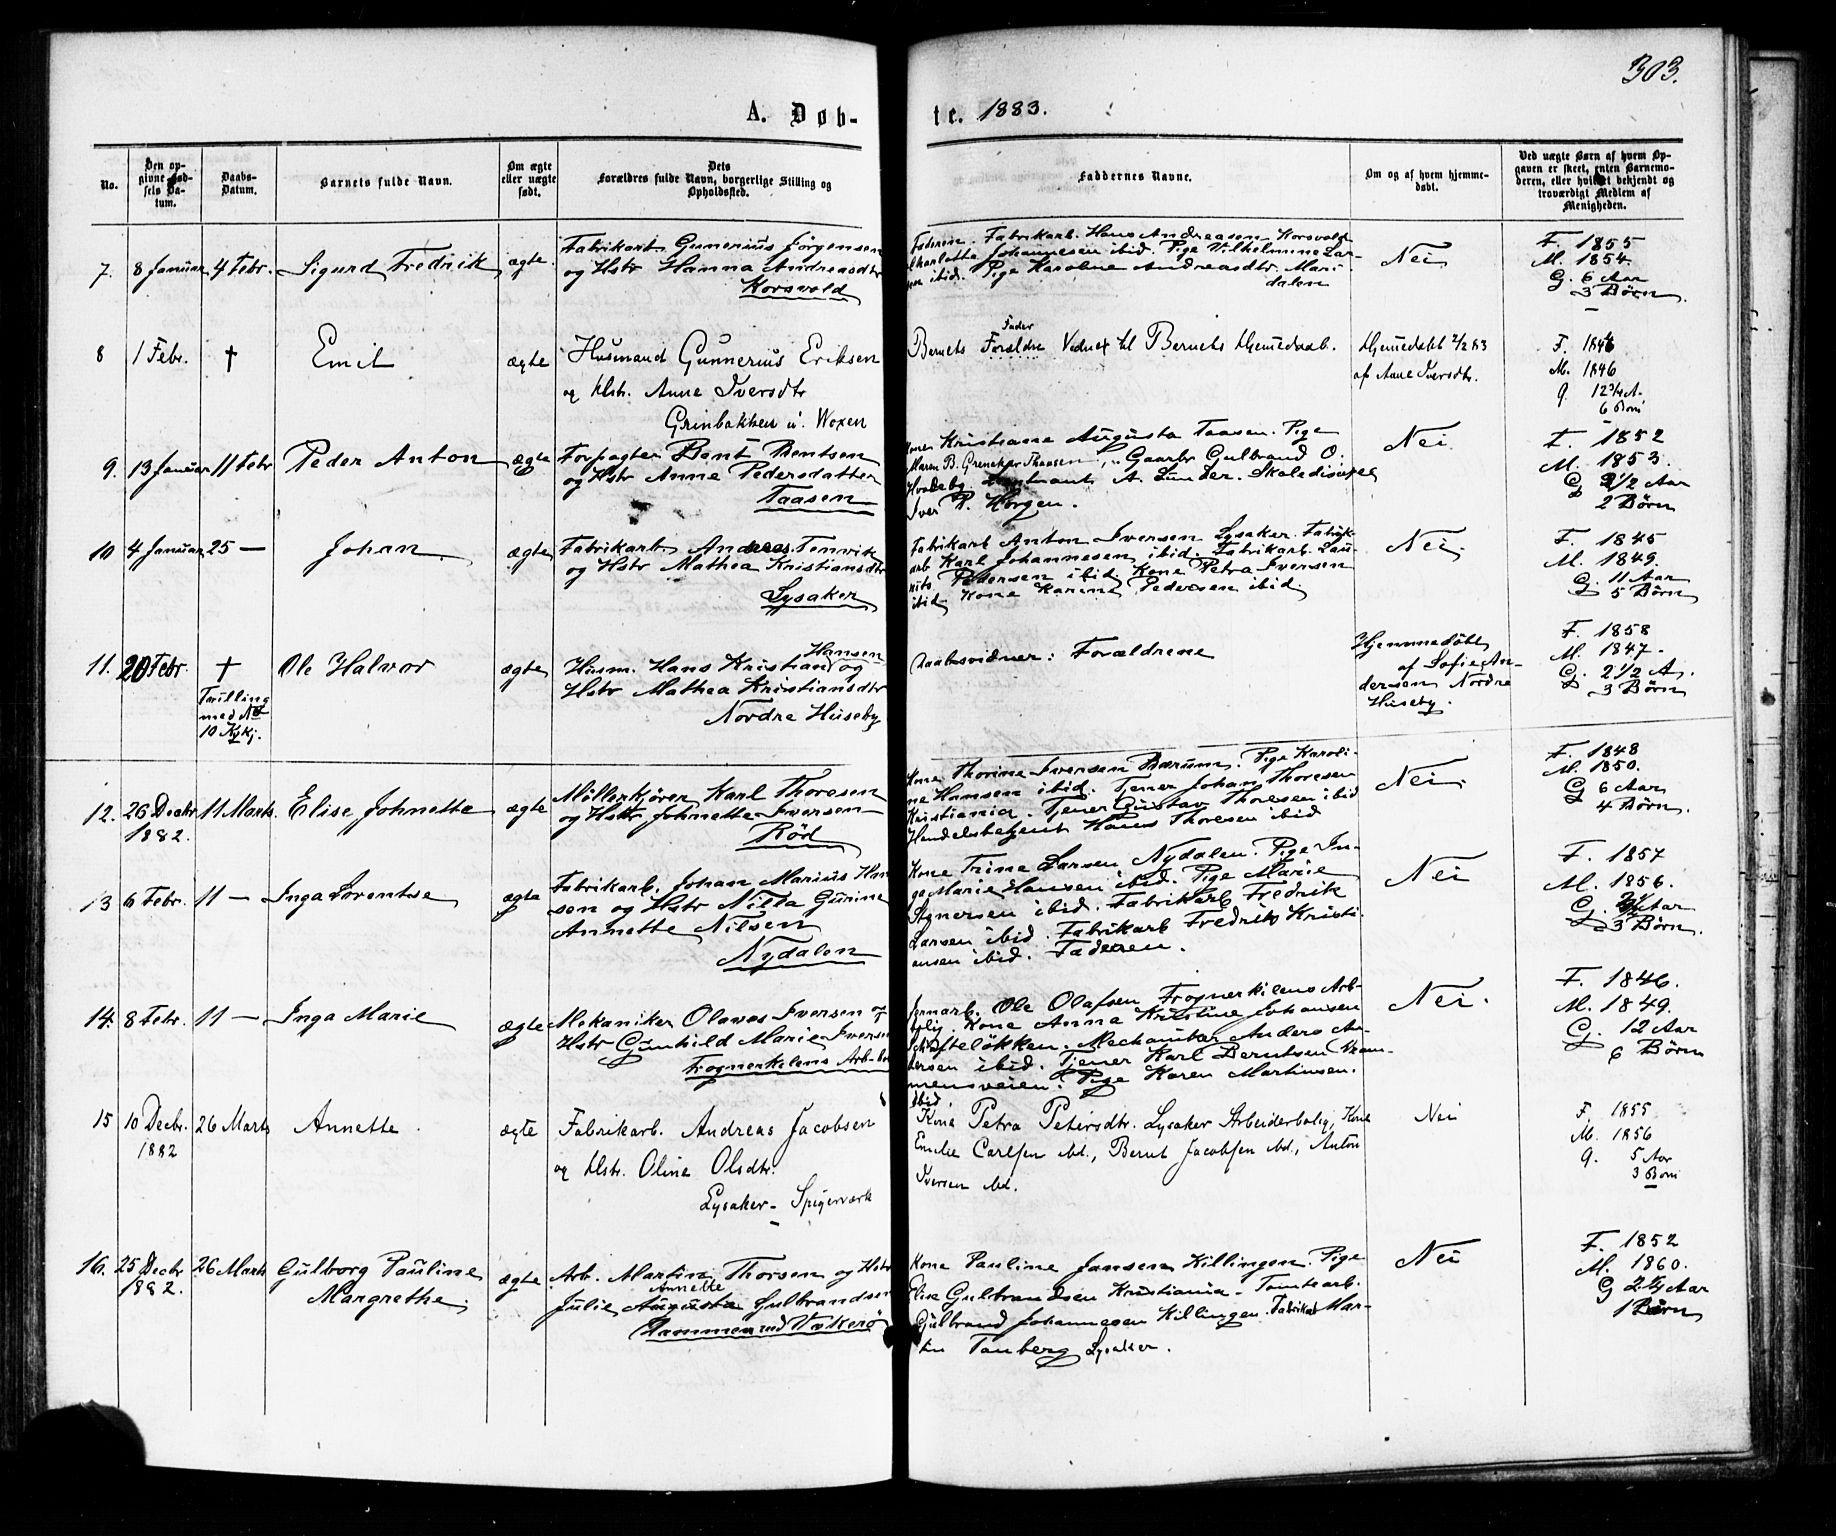 303.
A. Døb-
te. 1883.
No.
Den op-
givne Fød-
sels Da-
tum.
Daabs-
Datum.
Barnets fulde Navn.
Om ægte
eller uægte
født.
Dets
Forældres fulde Navn, borgerlige Stilling og
Opholdssted.
Faddernes Navne.
Om og af hvem hjemme-
døbt.
Ved uægte Børn af hvem Op-
gaven er skeet, enten Barnemo-
deren, eller hvilket bekjendt og
troværdigt Medlem af
Menigheden.
7. 8 Januar 4 Febr. Sigurd Fredrik ægte
Fabrikarb. Gunerius Jörgensen
og Hstr Hanna Andreasdtr
Korsvold
Faderen. Fabrikarb. Hans Andreasen Korsvold
Charlotte Johannesen ibid. Pige Vilhelmine Lar-
sen ibid. Pige Karoline Andreasdtr. Mari-
dalen
Nei
F. 1855
M. 1854.
G. 6 Aar
3 Börn.
8 1 Febr. † Emil ægte
Husmand Gunnerius Eriksen
og Hstr. Anne Iversdtr
Grinbakken u. Woxen
Fader
Barnets Forældre Vidner til Barnets Hjemmedaab.
Hjemmedøbt 2/2 83
af Anne Iversdtr.
F. 1846
M. 1846
G. 12 3/4 A.
6 Børn
9. 13 Januar 11 Febr Peder Anton ægte
Forpagter Bent Bentsen
og Hstr Anne Pedersdatter
Taasen
Kone Kristiane Augusta Taasen. Pige
Maren B. Grenekjer Thaasen, Gaarbr Gulbrand O.
A. Lunder. Skoledisipel
Iver P. Horgen.
Nei
F. 1852
M. 1853.
G 3 1/2 Aar
2 Börn
10 4 Januar 25 — Johan ægte
Fabrikarb. Andreas Tenvik
og Hstr Mathea Kristiansdtr
Lysaker
Fabrikarb Anton Iversen Lysaker. Fabrik-
arb Karl Johannesen ibid. Fabrikarb. Lau-
rits Pedersen ibid. Kone Petra Iversen
ibid. Kone Karine Pedersen ibid.
Nei.
F. 1845
M. 1849.
G. 11 Aar
5 Börn
11. 20 Febr. † Ole Halvor ægte
Tvilling
med No
10 Kvkj.
Husm. Hans Kristian Hansen og
Hstr Mathea Kristiansdtr
Nordre Huseby
Daabsvidner: Forældrene
Hjemmedöbt
af Sofie An-
dersen Nordre
Huseby.
F. 1858
M. 1847.
G. 2 1/2 A.
3 Börn
12. 26 Decbr 11 Marts Elise Johnette ægte
1882.
Möllerkjörer Karl Thoresen
og Hstr Johnette Iversen
Röd
Kone Thorine Iversen Bærum. Pige Karoli-
ne Hansen ibid. Tjener Johan Thoresen
Kristiania. Tjener Gustav Thoresen ibid
Handelsbetjent Hans Thoresen ibid
Nei.
F. 1848
M. 1850.
G 6 Aar
4 Börn.
13 6 Febr. 11 — Inga Lorentse ægte
Fabrikarb. Johan Marius Han-
sen og Hstr Nilla Gurine
Annette Nilsen
Nydalen
Kone Trine Larsen Nydalen. Pige In-
ga Marie Hansen ibid. Pige Marie
Agnersen ibid. Fabrikarb Fredrik
Larsen ibid. Fabrikarb Fredrik Kristi-
ansen ibid. Faderen.
Nei
F. 1857
M. 1856.
3 Börn.
14. 8 Febr. 11 — Inga Marie ægte
Mekaniker Olaves Iversen og
Hstr Gunhild Marie Iversen
Frognerkilens Arb.bo
Jernarb. Ole Olafsen Frognerkilens Arb-
bolig. Kone Anna Kristine Johansen
Skiftelökken. Mechanikar Anders An-
dersen ibid. Tjener Karl Berntsen Dram-
mensveien. Pige Karen Martinsen.
ibid.
Nei.
F. 1846.
M. 1849.
G. 12 Aar
6 Börn
15 10 Decbr. 26 Marts Annette ægte
1882
Fabrikarb. Andreas Jacobsen
og Hstr. Oline Olsdtr.
Lysaker - Spigerværk
Kone Petra Petersdtr. Lysaker Arbeiderbolig, Kone
Emilie Carlsen ibd., Bernt Jacobsen ibd., Anton
Iversen ibd.
Nei
F. 1855
M. 1856
G. 5 Aar
3 Børn
16. 25 Decbr 26 Marts Gulborg Pauline ægte
1882. Margrethe.
Arb. Martin Thorsen og Hstr
Annette
Julie Augusta Gulbrandsen
Kone Pauline Jansen Killingen. Pige
Elise Gulbrandsen Kristiania. Tomtearb.
Gulbrand Johannesen Killingen. Fabrikarb Mar-
tin Tanberg Lysaker.
Nei
F. 1852
M. 1860.
G 2 1/2 Aar
1 Börn